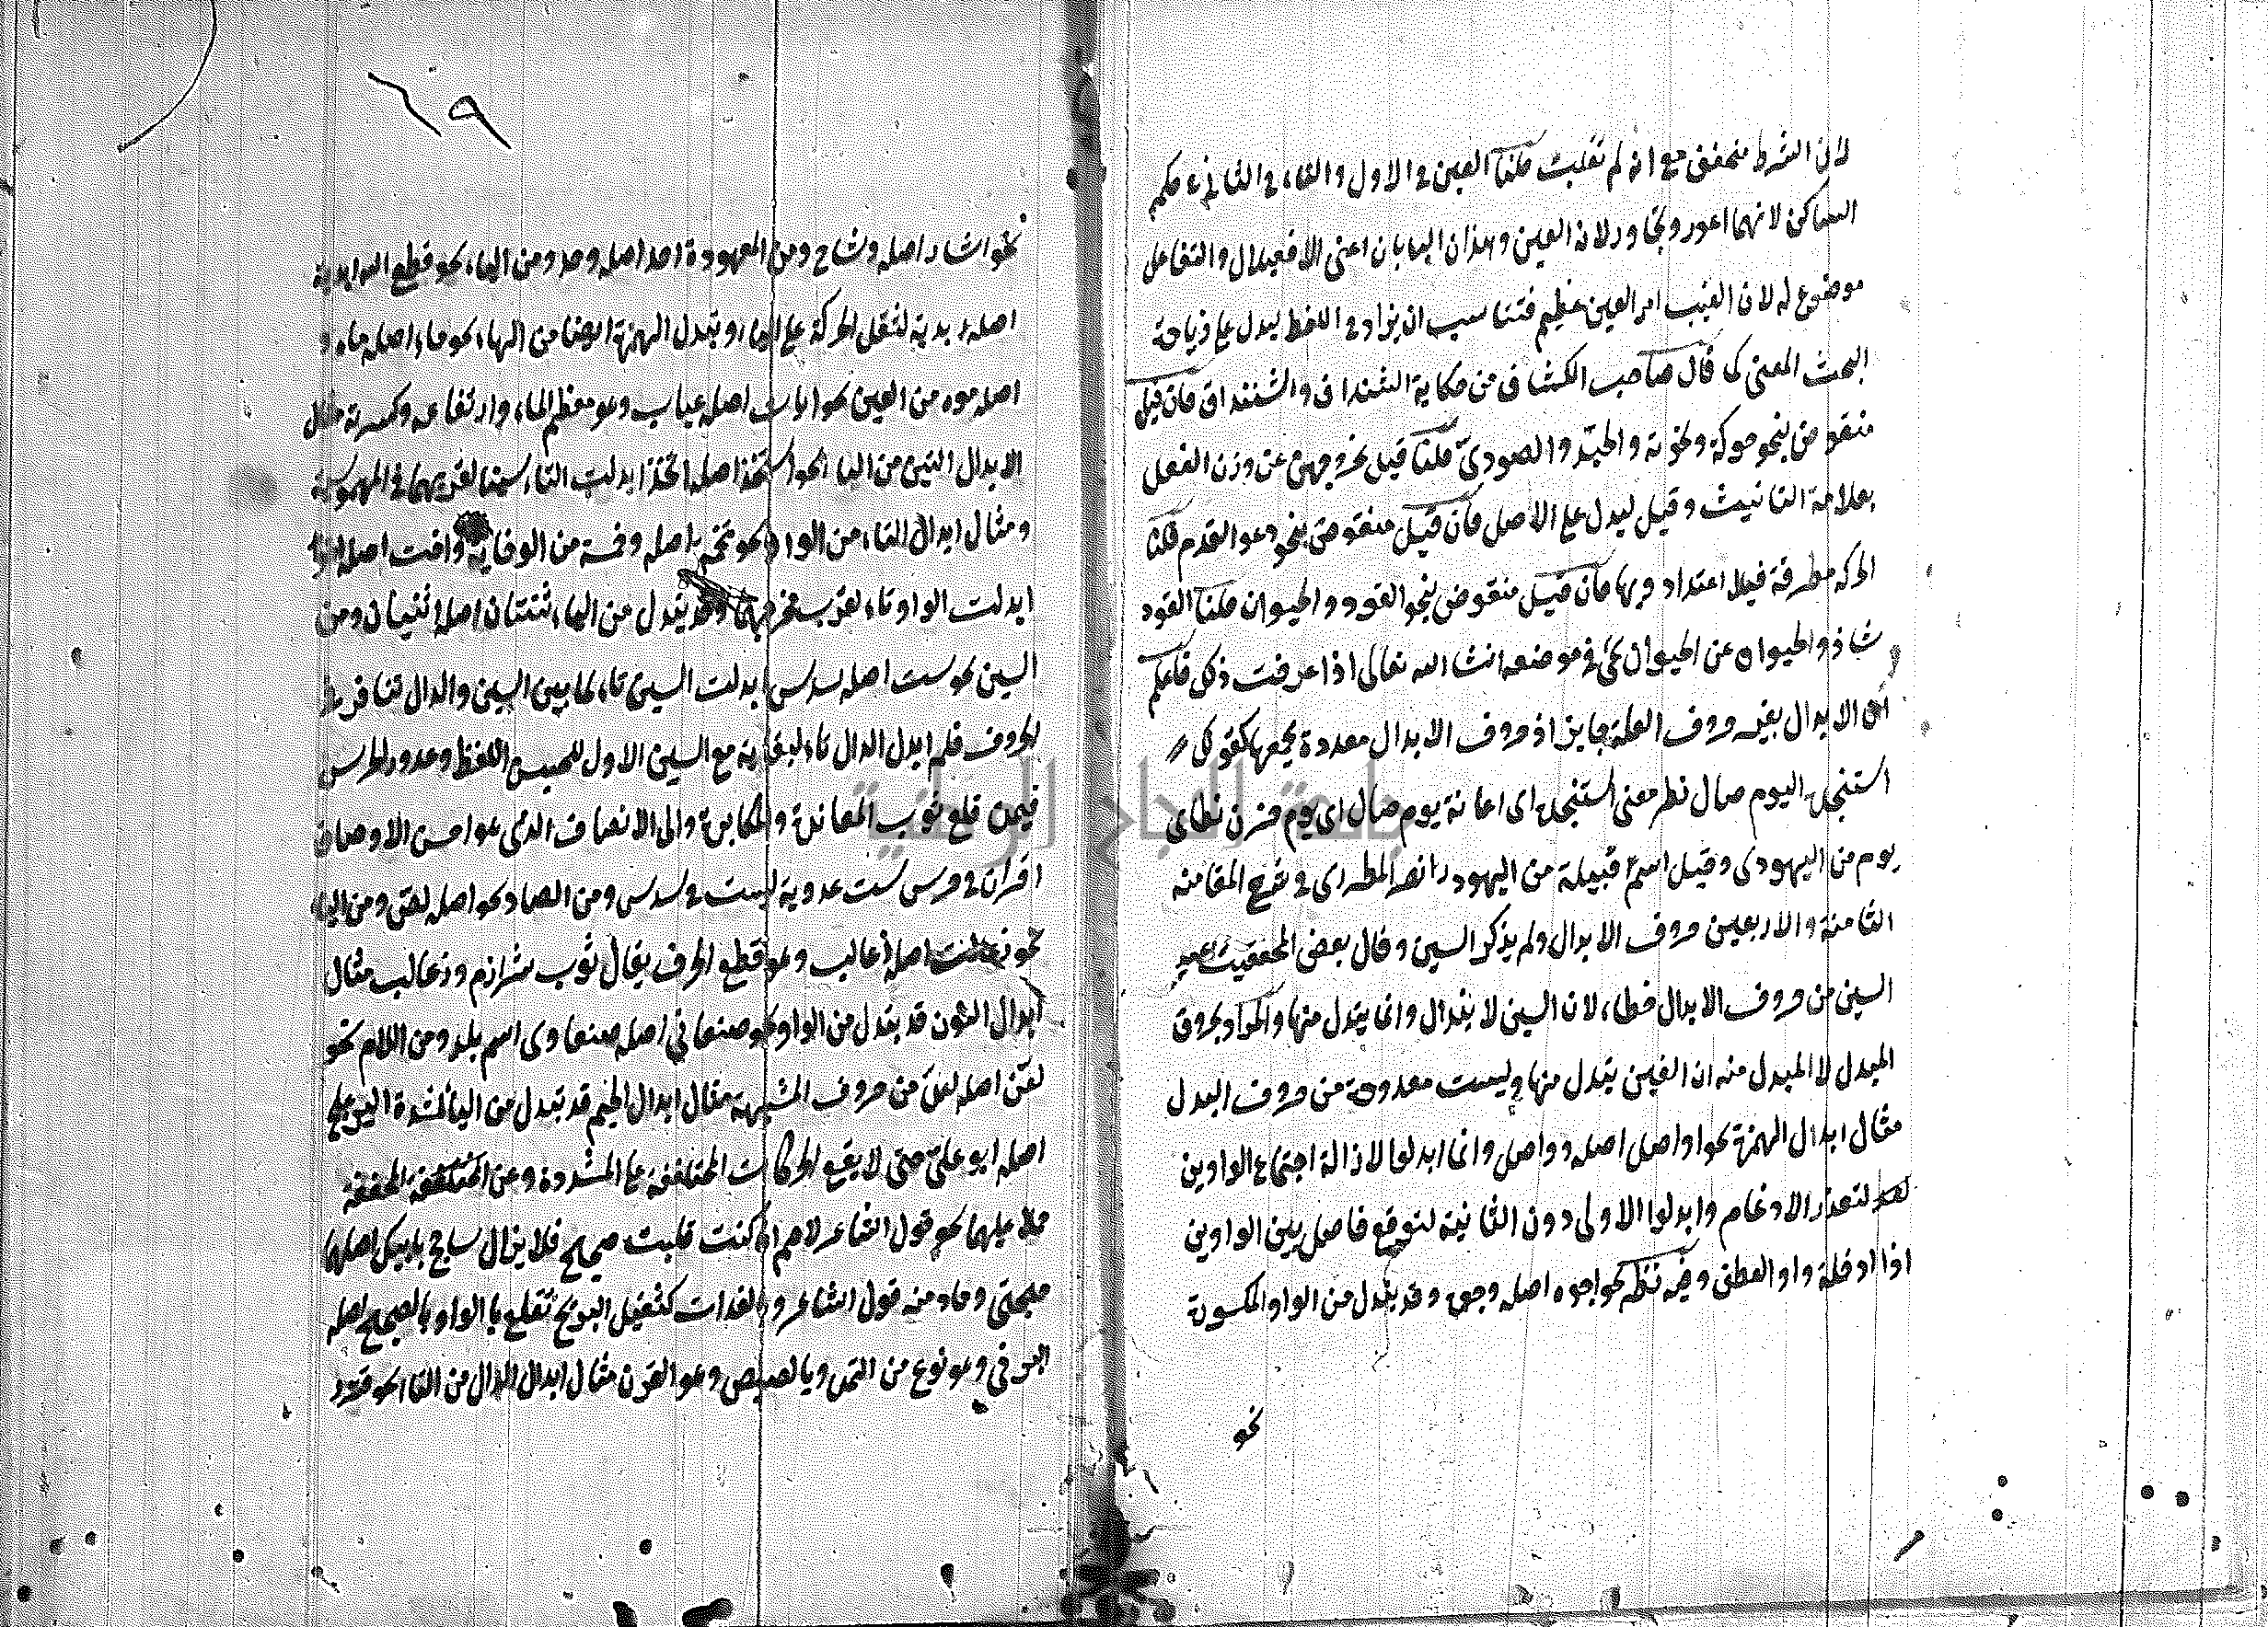 لان الشرط متحقق مع انه لم تقلبت قلنا العين في الاول والفاء في الثاني في حكم
الساكن لانهما اعور وتجاور لان العين وهذان البابان اعنى الافعيلال والتفاعل
موضوع له لان العيب امر العين عظيم فتناسب ان يزاد في اللفظ ليدل على زيادة
البحث المعنى كما قال صاحب الكشاف من حكاية الشنداف والشنتنداق فان قيل
منقوض بنحو حوكة وخونة والحيد والصودى قلنا قيل بخروجهن عن وزن الفعل
بعلامة التانيث وقيل ليدل على الاصل فان قيل منقوض بنحو دعو القدم قلنا
الحركة مطرفة فلا اعتداد بها فان قيل منقوض بنحو القود والحيوان قلنا القود
شاذ والحيوان عن الحيوان يجئ في موضعه انشا الله تعالى اذا عرفت ذلك فاعلم
ان الابدال بغير حروف العلة جايز اذ حروف الابدال معدودة يجمعها كقولك
استنجدة اليوم صال نط معنى استنجدة اى اعانة يوم صال اى يوم حزن نط اى
يوم من اليهودى وقيل اسم قبيلة من اليهود المطرزى في شرح المقامة
الثامنة والاربعين حروف الابدال ولم يذكر السين وقال بعض المحققين
السين من حروف الابدال خطاء لان السين لا يبدال وانما يبدل منها والمراد بحروف
المبدل لا المبدل منه ان العين يبدل منها وليست معدودة من حروف البدل
مثال ابدال الهمزة نحو اواصل اصله وواصل وانما ابدلوا لازالة اجتماع الواوين
لتعذر الادغام وابدلوا الاولى دون الثانية لتوقع فاصل بين الواوين
اذا ادخلة واو العطف وفيه نظر نحو اجوه اصله وجوه وقد يبدل من الواو المكسورة
نحو
٦٩
نحو اشاح اصله وشاح ومن المعهودة احد اصله وحد ومن الياء نحو قطع الله اديه
اصله يديه لثقل الحركة على الياء وتبدل الهمزة ايضا من الهاء نحو ماء اصله ماه و
اصله موه من العين نحو اباب اصله عباب وهو معظم الماء وارتفاعه وكسرته مثال
الابدال السين من التاء نحو استخذ اصله اتخذ ابدلت التاء سينا لقربهما في المهموسة
ومثال ابدال التاء من الواو نحو تخمة اصله وخمة من الوقاية واخت اصله اخو
ابدلت الواو تاء لقرب مخرجهما وقد يبدل من الياء ثنتان اصله ثنيان ومن
السين نحو ست اصله سدس ابدلت السين تاء لما بين السين والدال تنافر في
الحروف فلم ابدل الدال تاء لبقائه مع السين الاول
فيمن قلع ثوب المعاندة والمكابرة والى الانصاف الذى هو احسن الاوصاف
ومن الصاد نحو اصله لصت ومن الباء
نحو ذعالت اصله ذعالب وهو قطع الخرف يقال ثوب شرازم وذعالب مثال
ابدال النون قد يبدل من الواو نحو صنعاني اصله صنعاوى اسم بلد ومن اللام نحو
لعن اصله لعل من حروف المشبهة مثال ابدال الجيم قد تبدل من الياء المشددة ابو علج
اصله ابو على حتى لا يقع الحركات المختلفة على المشددة وعن المخففة
حملا عليها نحو قول الشاعر لاهم ان كنت قبلت حجتج فلا يزال شاحج ياتيك بج اصلها
حجتى وجاء منه قول الشاعر وبالغدات كتفيل البرنج تقلع بالود وبالصيصج اصله
البرني وهو نوع من التمر وبالصيص وهو القرن مثال ابدال الدال من التاء نحو فزد